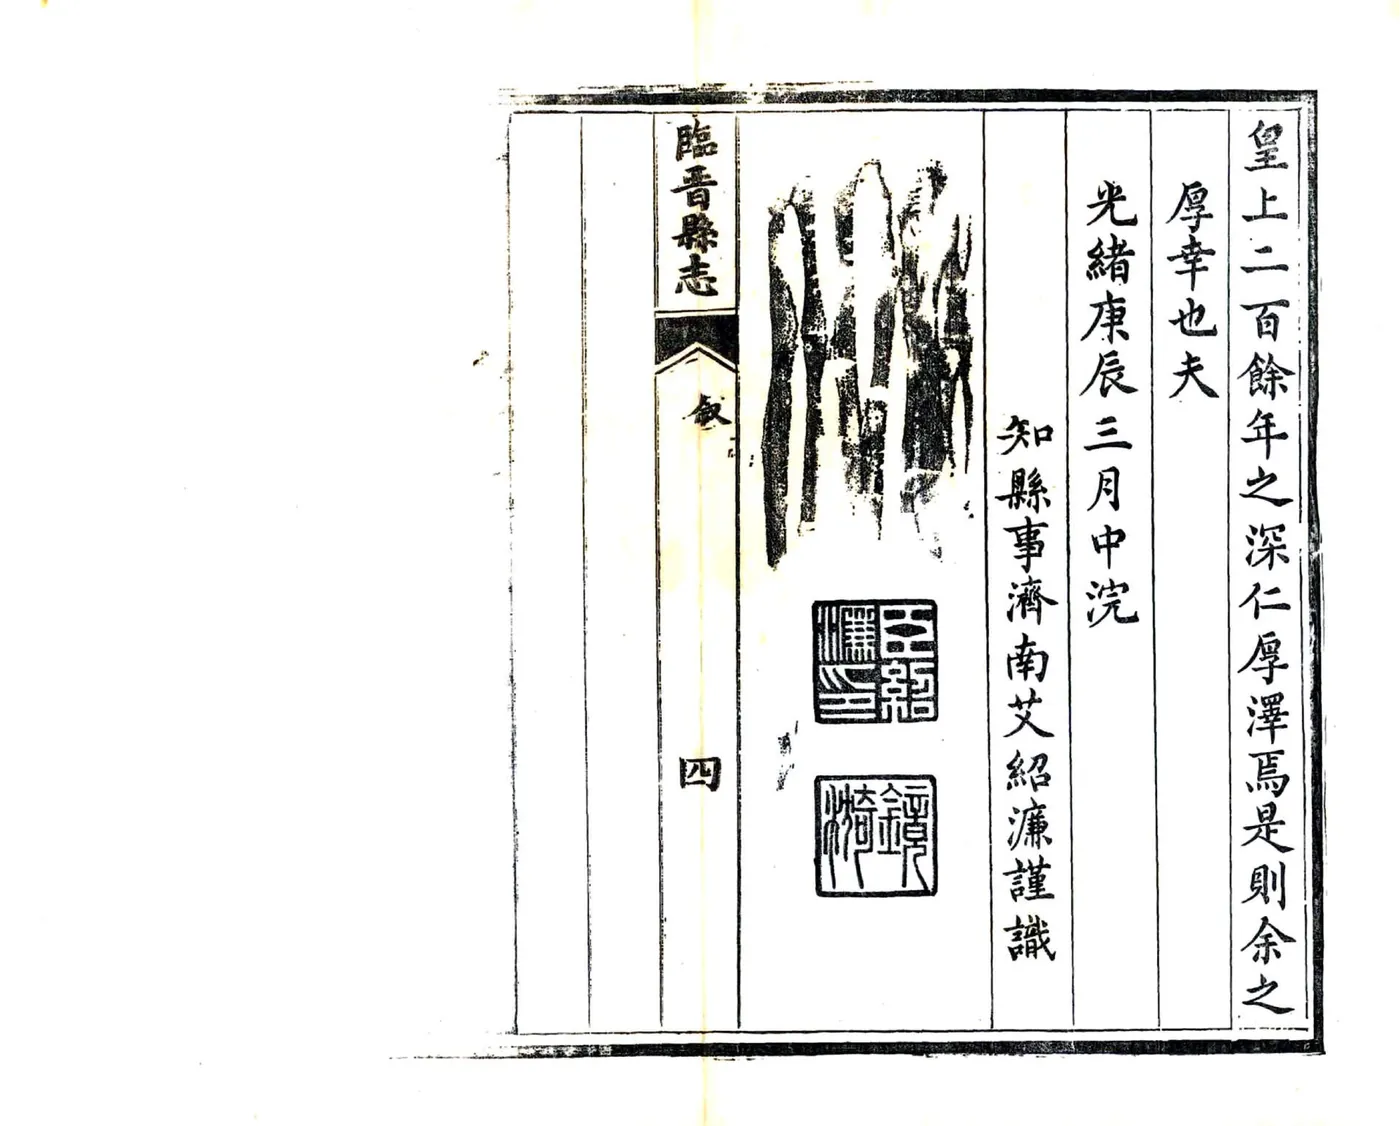 皇上二百餘年之深仁厚澤焉是則余之
厚幸也夫
光緒庚辰三月中浣
知縣事濟南艾紹濂謹識
臣紹
濂印
鏡
漪
臨晋縣志
敘
四